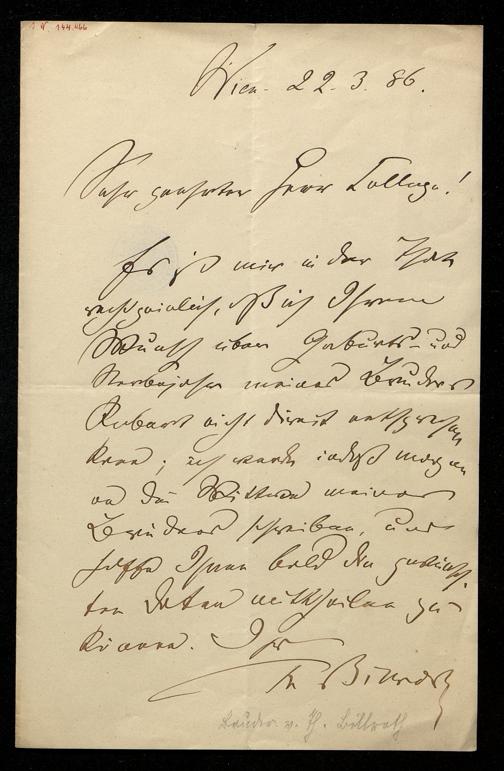 I. N. 144.466
Wien. 22. 3. 86.
Sehr geehrter Herr College!
Es ist mir in der That
recht peinlich, daß ich Ihrem
Wunsch über Geburts- und
Sterbejahr meines Bruders
Robert nicht direct entsprechen
kann; ich werde indeß morgen
an die Wittwe meines
Bruders schreiben, und
hoffe Ihnen bald die gewünsch-
ten Daten mittheilen zu
können. Ihr
Th Billroth
Bruder v. Th. Billroth